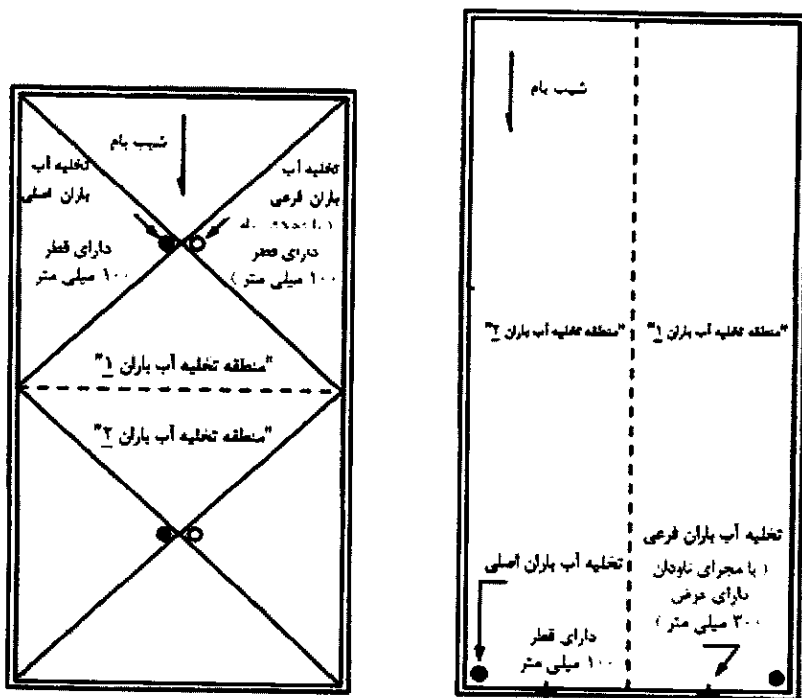 شیب بام
تخلیه آب
باران اصلی
دارای قطر
۱۰۰ میلی متر
تخلیه آب
باران فرعی
دارای قطر
۱۰۰ میلی متر )
"منطقه تخلیه آب باران ۱"
"منطقه تخلیه آب باران ۲"
شیب بام
"منطقه تخلیه آب باران ۲"
"منطقه تخلیه آب باران ۱"
تخلیه آب باران اصلی
دارای قطر
۱۰۰ میلی متر
تخلیه آب باران فرعی
( با مجرای ناودان
دارای عرض
۳۰۰ میلی متر )